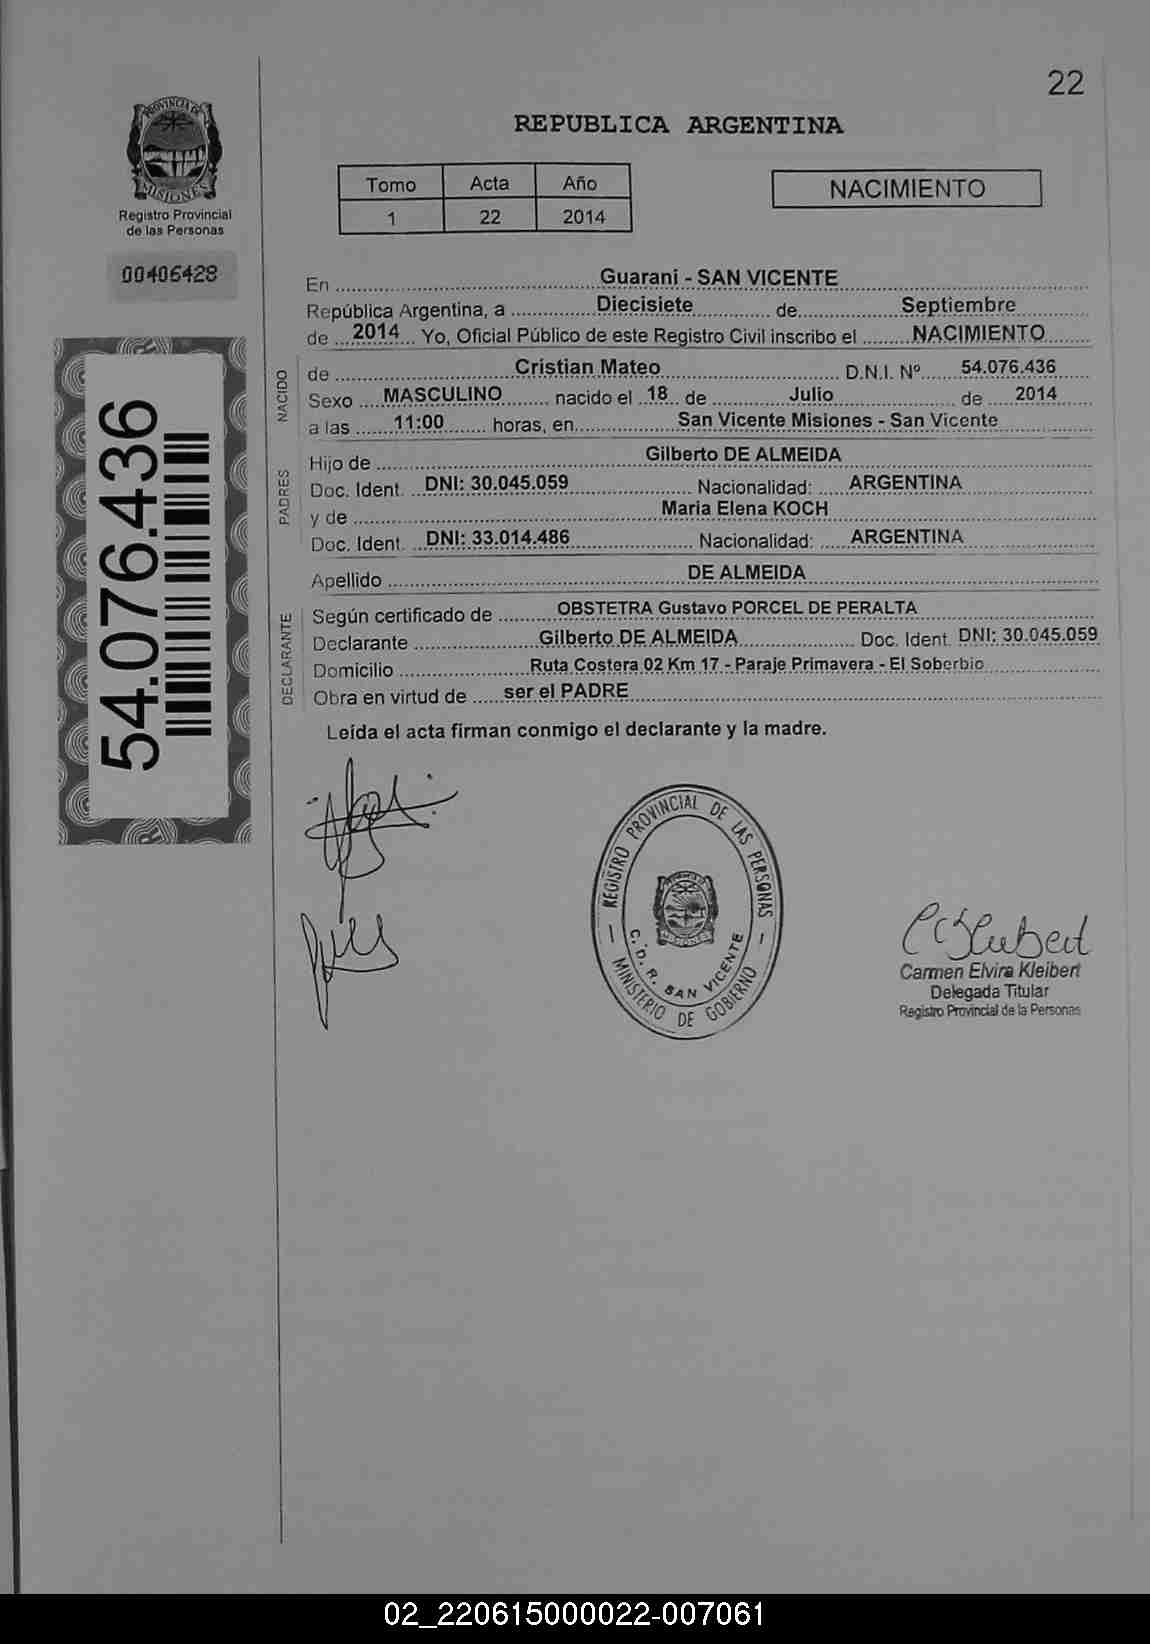 22
PROVINCIA DE
MISIONES
Registro Provincial
de las Personas
00406428
54.076.436
REPUBLICA ARGENTINA
Tomo Acta Año
1 22 2014
NACIMIENTO
En Guarani - SAN VICENTE
República Argentina, a Diecisiete de Septiembre
de 2014 Yo, Oficial Público de este Registro Civil inscribo el NACIMIENTO
NACIDO
de Cristian Mateo D.N.I. Nº 54.076.436
Sexo MASCULINO nacido el 18 de Julio de 2014
a las 11:00 horas, en San Vicente Misiones - San Vicente
PADRES
Hijo de Gilberto DE ALMEIDA
Doc. Ident. DNI: 30.045.059 Nacionalidad: ARGENTINA
y de Maria Elena KOCH
Doc. Ident. DNI: 33.014.486 Nacionalidad: ARGENTINA
Apellido DE ALMEIDA
DECLARANTE
Según certificado de OBSTETRA Gustavo PORCEL DE PERALTA
Declarante Gilberto DE ALMEIDA Doc. Ident. DNI: 30.045.059
Domicilio Ruta Costera 02 Km 17 - Paraje Primavera - El Soberbio
Obra en virtud de ser el PADRE
Leída el acta firman conmigo el declarante y la madre.
REGISTRO PROVINCIAL DE LAS PERSONAS
MINISTERIO DE GOBIERNO
C. D. R. SAN VICENTE
Carmen Elvira Kleibert
Delegada Titular
Registro Provincial de la Personas
02_220615000022-007061